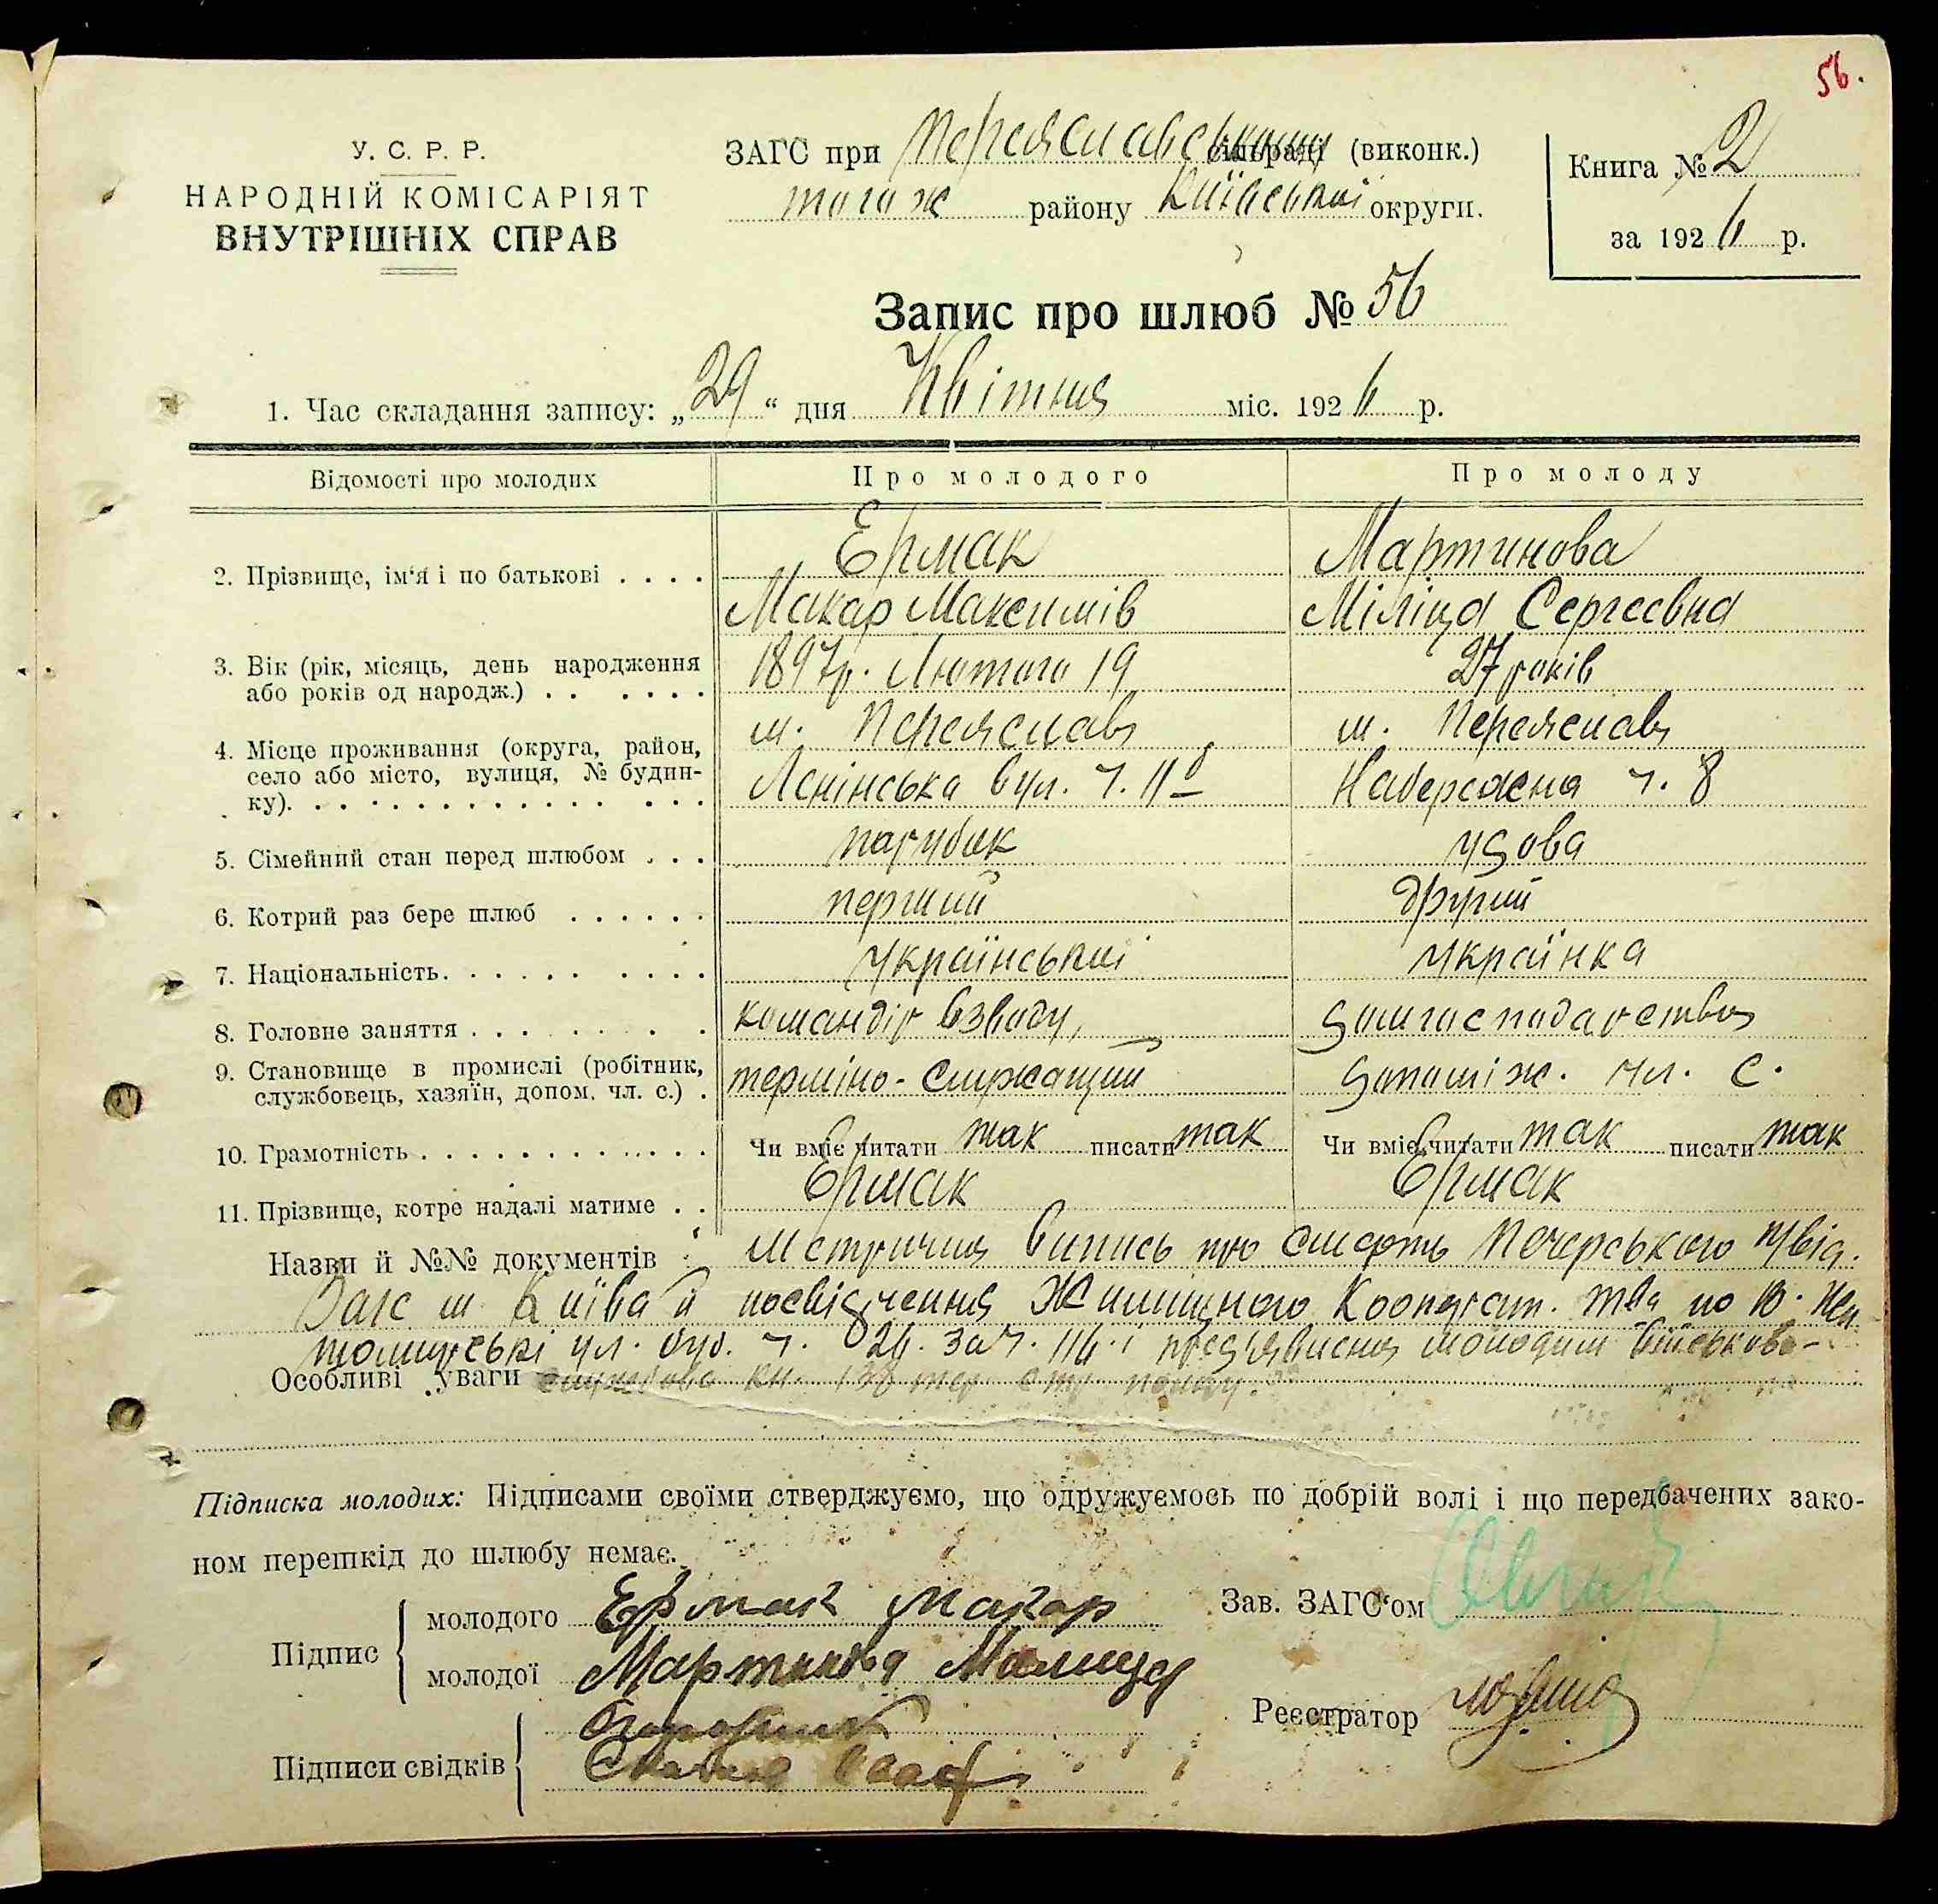 56.
У. С. Р. Р.
НАРОДНІЙ КОМІСАРІЯТ
ВНУТРІШНІХ СПРАВ
ЗАГС при Переяславському сільраді (виконк.)
того ж району Київської округи.
Книга № 2
за 1926 р.
Запис про шлюб № 56
1. Час складання запису: „29“ дня Квітня міс. 1926 р.
Відомості про молодих
Про молодого
Про молоду
2. Прізвище, ім'я і по батькові . . . .
Ермак
Мартинова
Макар Максимів
Міліца Сергеєвна
3. Вік (рік, місяць, день народження
або років од народж.) . . . . . .
1897р. Лютого 19
27 років
4. Місце проживання (округа, район,
село або місто, вулиця, № будин-
ку). . . . . . . . . . . . . . . .
м. Переяслав
м. Переяслав
Ленінська вул. ч. 11а
Набережна ч. 8
5. Сімейний стан перед шлюбом . . .
парубок
удова
6. Котрий раз бере шлюб . . . . . .
перший
другий
7. Національність. . . . . . . . . .
український
українка
8. Головне заняття . . . . . . . .
командір взводу,
домгосподарство
9. Становище в промислі (робітник,
службовець, хазяїн, допом. чл. с.) .
терміно-служащий
допоміж. чл. с.
10. Грамотність . . . . . . . . . . . . .
Чи вміє читати так писати так
Чи вміє читати так писати так
11. Прізвище, котре надалі матиме . .
Ермак
Ермак
Назви й №№ документів Метрична випись про смерть Печерського
Загс м. Київа й посвідчення Жилищного Кооперат. тва по
ул. буд. ч. за ч. 116 і предъявлена молодим військово-
Особливі уваги службова кн. 138 тер. стр. полку.
Підписка молодих: Підписами своїми стверджуємо, що одружуємось по добрій волі і що передбачених зако-
ном перешкід до шлюбу немає.
Підпис
молодого Ермак Макар
молодої Мартинова Милица
Зав. ЗАГС'ом
Реєстратор
Підписи свідків